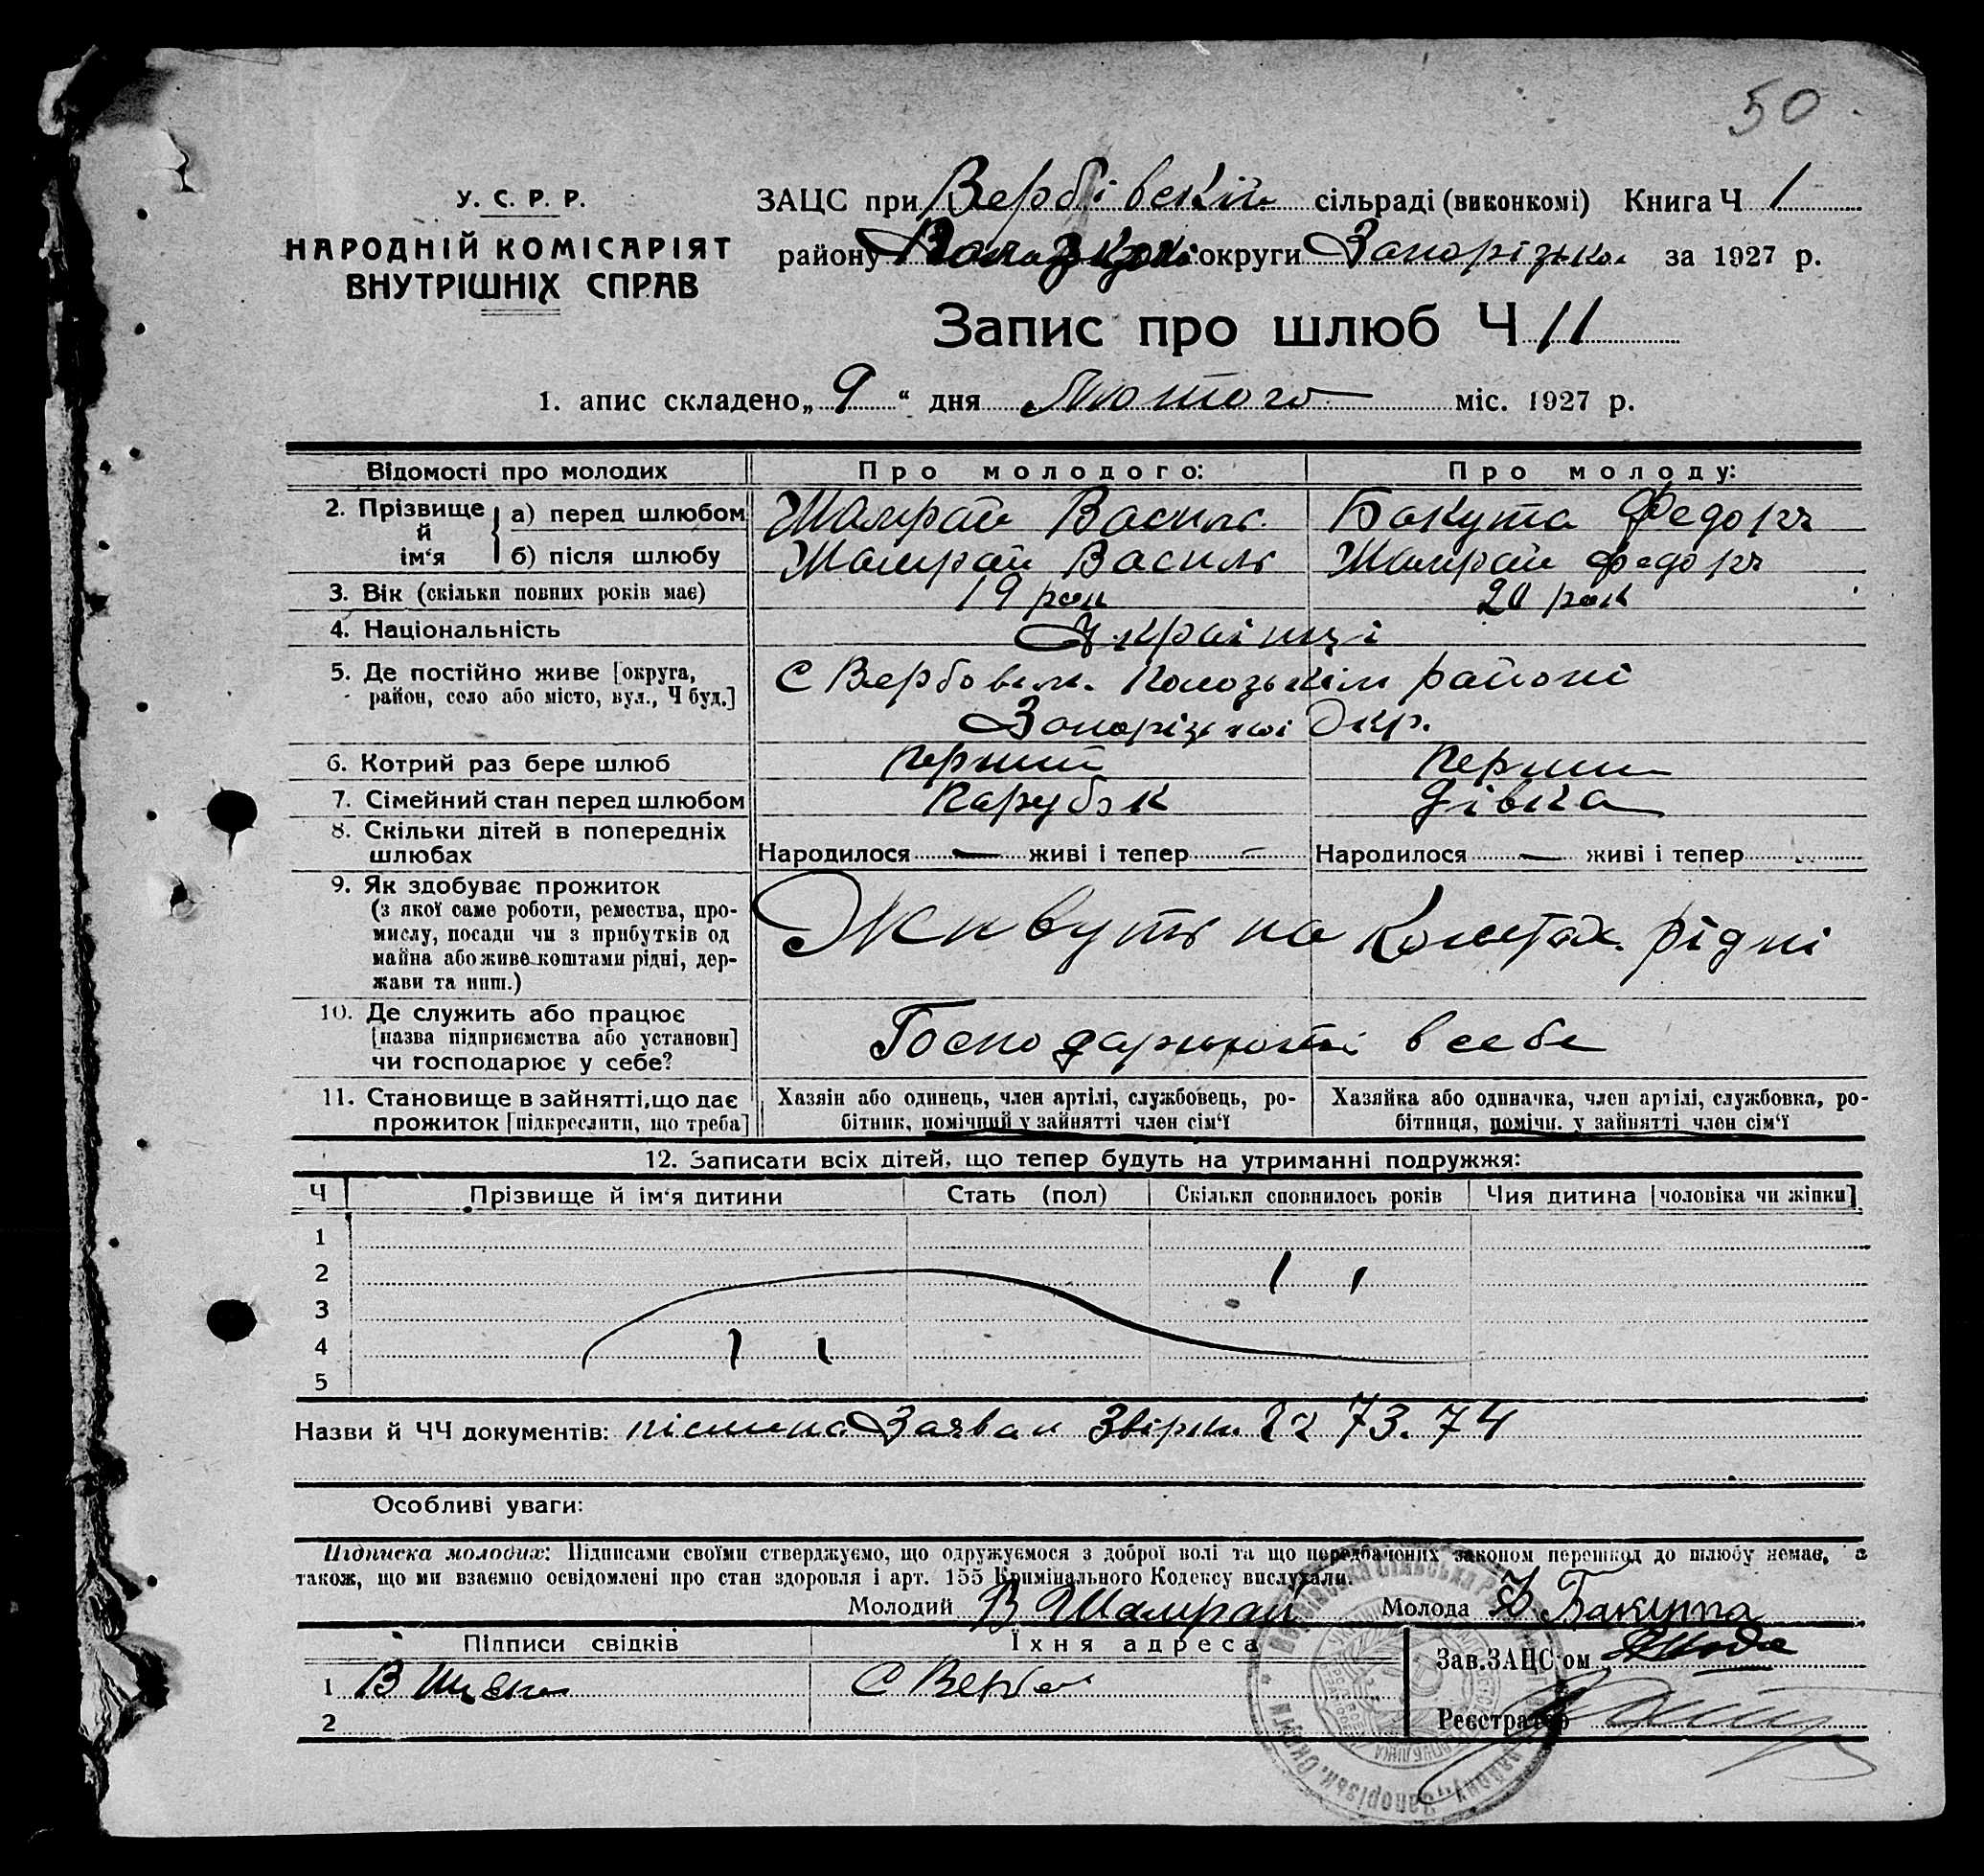 50
У. С. Р. Р.
НАРОДНІЙ КОМІСАРІЯТ
ВНУТРІШНІХ СПРАВ
ЗАЦС при Вербівській сільраді (виконкомі) Книга Ч 1
району округи Запорізької за 1927 р.
Запис про шлюб Ч 11
1. апис складено „ 9 “ дня Лютого міс. 1927 р.
Відомості про молодих Про молодого: Про молоду:
2. Прізвище й ім‘я
а) перед шлюбом Шамрай Василь Бакута Федора
б) після шлюбу Шамрай Василь Шамрай Федора
3. Вік (скільки повних років має) 19 рок 20 рок
4. Національність Українці
5. Де постійно живе [округа,
район, село або місто, вул., Ч буд.] С районі
Запорізької Окр.
6. Котрий раз бере шлюб перший перший
7. Сімейний стан перед шлюбом Парубок дівка
8. Скільки дітей в попередніх
шлюбах Народилося — живі і тепер — Народилося — живі і тепер
9. Як здобуває прожиток
(з якої саме роботи, ремества, про-
мислу, посади чи з прибутків од
майна або живе коштами рідні, дер-
жави та инш.)
Живуть на Коштах рідні
10. Де служить або працює
[назва підприємства або установи]
чи господарює у себе?
Господарюють в себе
11. Становище в зайнятті, що дає
прожиток [підкреслити, що треба]
Хазяїн або одинець, член артілі, службовець, ро-
бітник, помічний у зайнятті член сім‘ї
Хазяйка або одиначка, член артілі, службовка, ро-
бітниця, помічн. у зайнятті член сім‘ї
12. Записати всіх дітей, що тепер будуть на утриманні подружжя:
Ч Прізвище й ім‘я дитини Стать (пол) Скільки сповнилось років Чия дитина [чоловіка чи жінки]
1
2
3
4
5
Назви й ЧЧ документів: Заява 73. 74
Особливі уваги:
Підписка молодих: Підписами своїми стверджуємо, що одружуємося з доброї волі та що передбачених законом перешкод до шлюбу немає, а
також, що ми взаємно освідомлені про стан здоровля і арт. 155 Кримінального Кодексу вислухали.
Молодий В Шамрай Молода Ф Бакута
Підписи свідків Їхня адреса Зав. ЗАЦС‘ом
1 В С Верб
2 Реєстратор